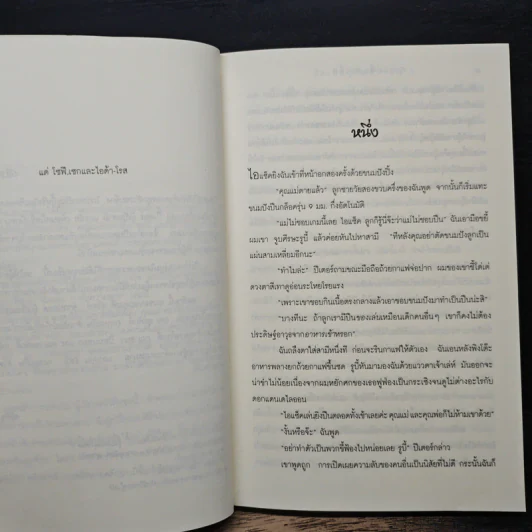 แด่ โซฟี, เชกและไอด้า-โรส
หนึ่ง
ไอแซ็คยิงฉันเข้าที่หน้าอกสองครั้งด้วยขนมปังปิ้ง
"คุณแม่ตายแล้ว" ลูกชายวัยสองขวบครึ่งของฉันพูด จากนั้นก็เริ่มแทะ
ขนมปังปืนกล็อครุ่น 9 มม. กึ่งอัตโนมัติ
"แม่ไม่ชอบเกมนี้เลย ไอแซ็ค ลูกก็รู้นี่จ๊ะว่าแม่ไม่ชอบปืน" ฉันเอามือขยี้
ผมเขา จูบศีรษะรูบี้ แล้วค่อยหันไปหาสามี "ทีหลังคุณอย่าตัดขนมปังลูกเป็น
แผ่นสามเหลี่ยมอีกนะ"
"ทำไมล่ะ" ปีเตอร์ถามขณะมือถือถ้วยกาแฟจ่อปาก ผมของเขาชี้โด่เด่
ดวงตาสีเทาดูอ่อนระโหยโรยแรง
"เพราะเขาชอบกินเนื้อตรงกลางแล้วเอาขอบขนมปังมาทำเป็นปืนน่ะสิ"
"บางทีนะ ถ้าลูกเรามีปืนของเล่นเหมือนเด็กคนอื่นๆ เขาก็คงไม่ต้อง
ประดิษฐ์อาวุธจากอาหารเช้าหรอก"
ฉันถลึงตาใส่สามีหนึ่งที ก่อนจะรินกาแฟให้ตัวเอง ฉันเอนหลังพิงโต๊ะ
อาหารพลางยกถ้วยกาแฟขึ้นซด รูบี้หันมามองฉันด้วยแววตาเจ้าเล่ห์ มันออกจะ
น่าขำไม่น้อยเนื่องจากผมหยักศกของเธอฟูฟ่องเป็นกระเซิงจนดูไม่ต่างอะไรกับ
ดอกแดนดิไลออน
"ไอแซ็คเล่นยิงปืนตลอดทั้งเช้าเลยค่ะ คุณแม่ และคุณพ่อก็ไม่ห้ามเขาด้วย"
"งั้นหรือจ๊ะ" ฉันพูด
"อย่าทำตัวเป็นพวกขี้ฟ้องไปหน่อยเลย รูบี้" ปีเตอร์กล่าว
เขาพูดถูก การเปิดเผยความลับของคนอื่นเป็นนิสัยที่ไม่ดี กระนั้นฉันก็